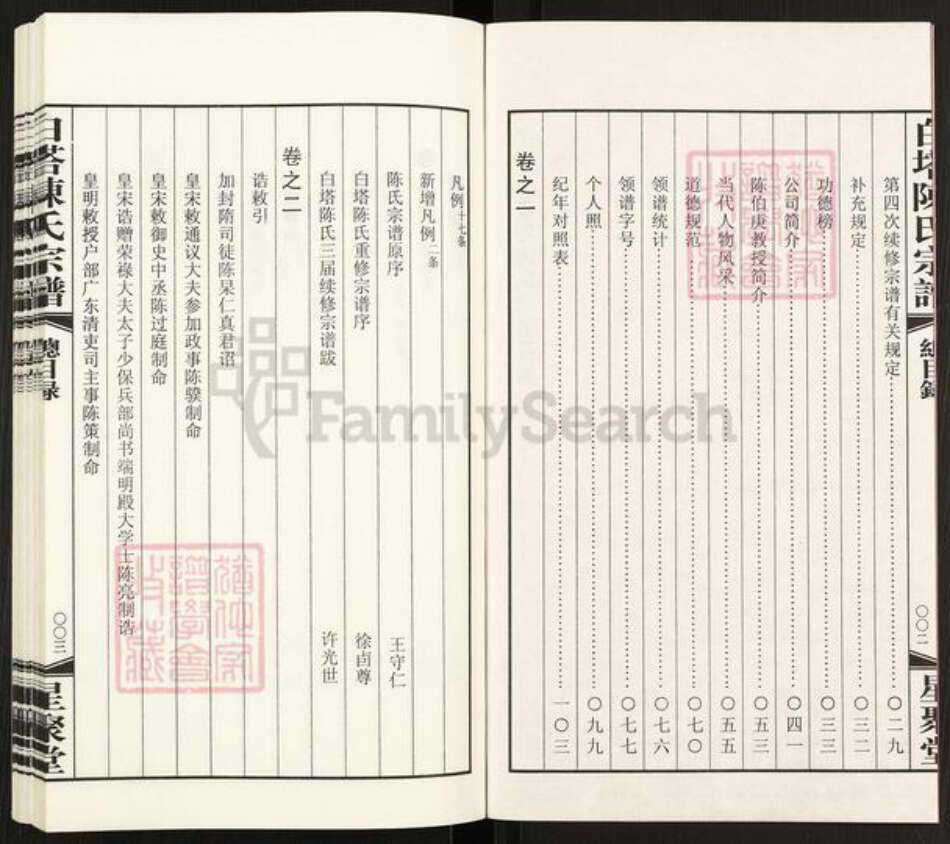 白塔陈氏宗谱
总目录
〇〇二
星聚堂
第四次续修宗谱有关规定……〇二九
补充规定……〇三二
功德榜……〇三三
公司简介……〇四一
陈伯庚教授简介……〇五三
当代人物风采……〇五五
道德规范……〇七〇
领谱统计……〇七六
领谱字号……〇七七
个人照……〇九九
纪年对照表……一〇三
卷之一
凡例十七条
新增凡例二条
陈氏宗谱原序 王守仁
白塔陈氏重修宗谱序 徐卣尊
白塔陈氏三届续修宗谱跋 许光世
卷之二
诰敕引
加封隋司徒陈杲仁真君诏
皇宋敕通议大夫参加政事陈骙制命
皇宋敕御史中丞陈过庭制命
皇宋诰赠荣禄大夫太子少保兵部尚书端明殿大学士陈亮制诰
皇明敕授户部广东清吏司主事陈策制命
白塔陈氏宗谱
总目录
〇〇三
星聚堂
FamilySearch